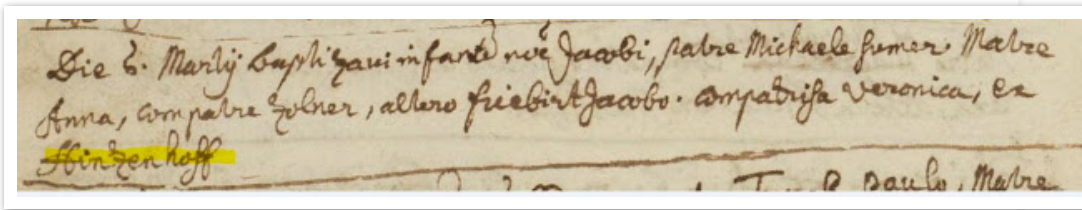 Die 6. Martij baptizavi infantē noē Jacobi, patre Michaele sumer. Matre
Anna, compatre Zolner, altero friebirt Jacobo. compatrissa Veronica, ex
Hinzenhoff
Paulo, Matre